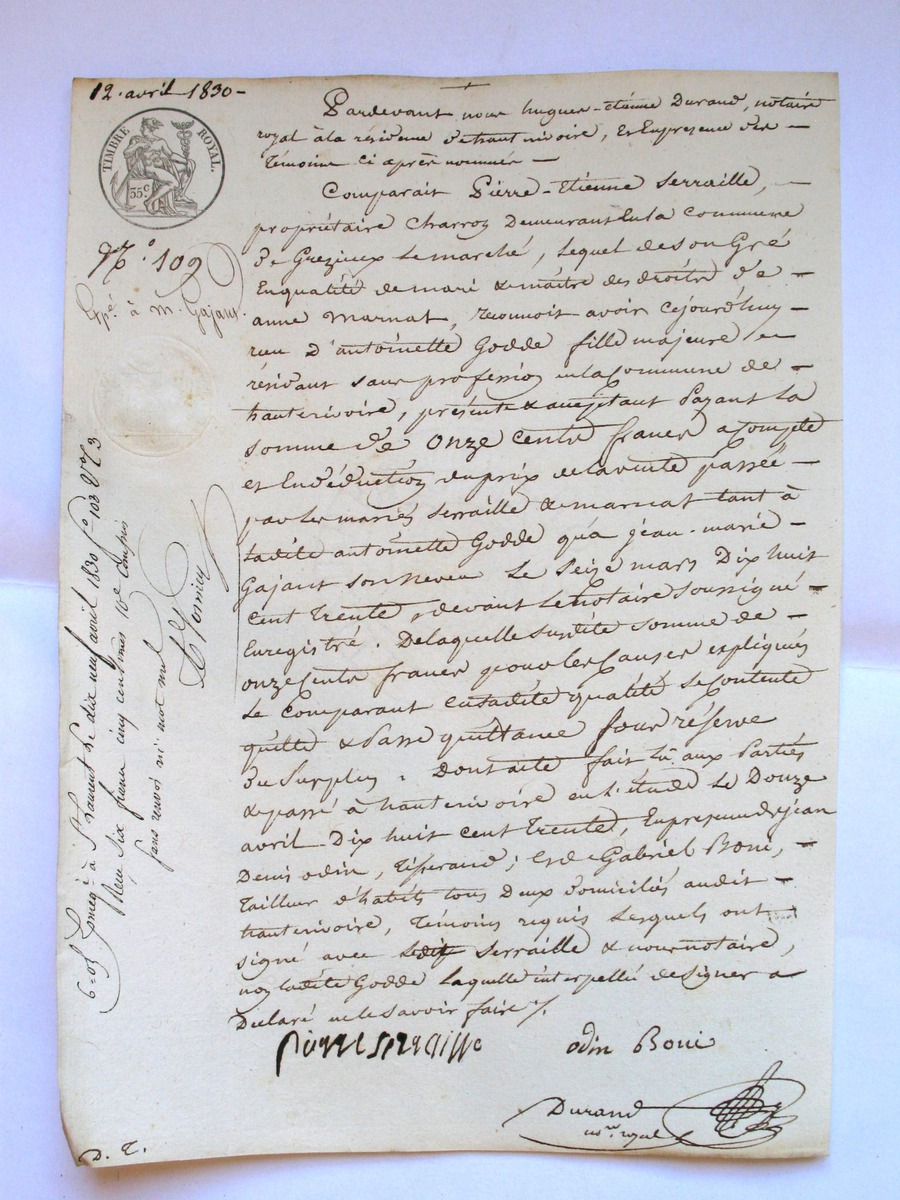 12. avril 1830 -
TIMBRE ROYAL.
35 C
N.º 109
Exp. à M. Gajant.
Pardevant nous hugues-étienne Durand, notaire
royal à la résidence d'hauterivoire, et en présence des
témoins ci après nommés -
Comparait Pierre-Etienne Serraille, -
propriétaire charron demeurant en la commune
de Grezieux le marché, lequel de son Gré
en qualité de mari & maître des droits d'e -
anne Marnat, reconnoit avoir cejourd'huy
reçu d'antoinette Godde fille majeure en
résidant sans profession en la commune de -
hauterivoire, présente & acceptant payant la
somme de onze cents francs à compte
et en déduction du prix de la vente passée -
par les mariés Serraille & marnat tant à
ladite antoinette Godde qu'à jean-marie -
Gajant son neveu le seize mars Dix huit
cent trente, devant le notaire soussigné -
enregistré. De laquelle susdite somme de -
onze cents francs pour les causes expliqués
le comparant en sadite qualité se contente
quitte & passe quittance sous réserve
du surplus. Dont acte fait lû aux Parties
& passé à hauterivoire en l'étude le Douze
avril Dix huit cent trente, en présence de jean
Denis odin, tisserand; et de Gabriel Boni, -
tailleur d'habits tous deux domiciliés audit -
hauterivoire, témoins requis lesquels ont
signé avec ledit Serraille & nous notaire,
non ladite Godde laquelle interpellée de signer a
Déclaré ne le savoir faire /.
pierre serraille
odin Boni
Durand
not. royal
D. T.
6-05 Enreg. à St. Laurent le dix neuf avril 1830 fo 103 Vo C 3
Reçu six francs cinq centimes 10e compris
sans renvoi ni mot nul